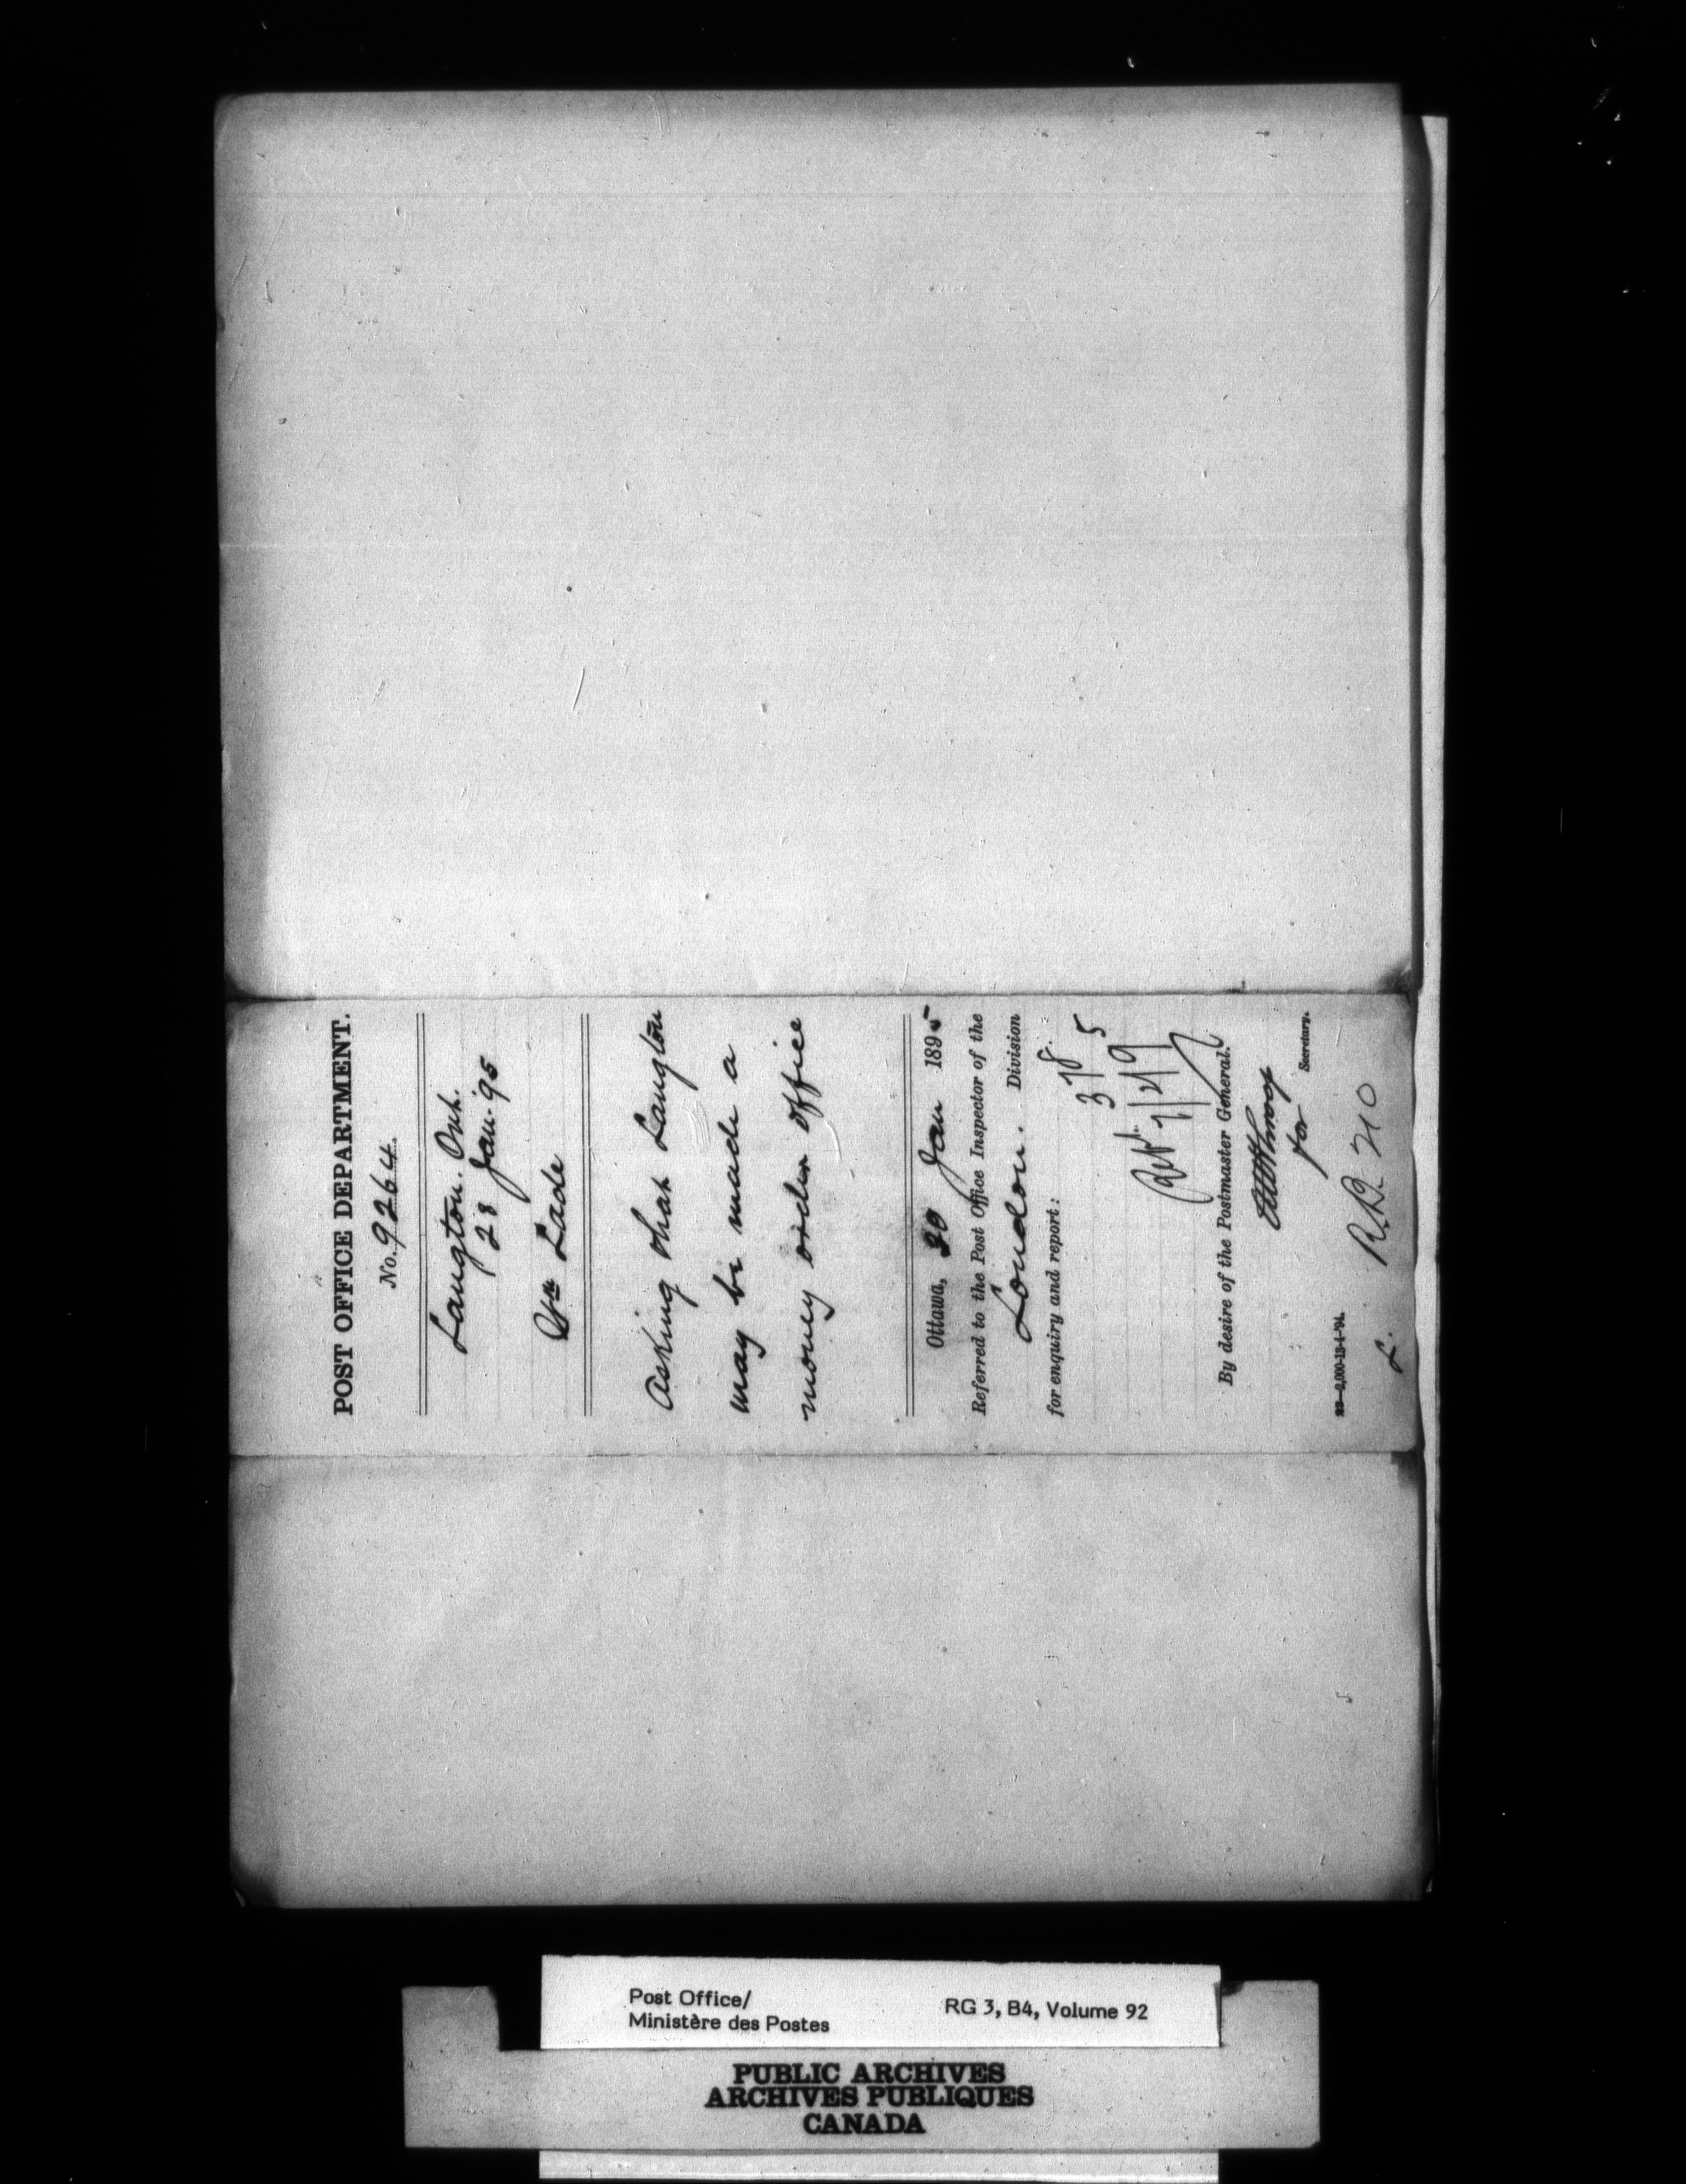 POST OFFICE DEPARTMENT.
No. 9264
Langton. Ont.
28 Jan. '95
Wm Lade
Asking that Langton
may be made a
money order office
Ottawa, 30 Jan 1895
Referred to the Post Office Inspector of the
London. Division
for enquiry and report:
378.
5
By desire of the Postmaster General.
for
Secretary.
23—2,000-13-4-'94.
L. R.B. 210
Post Office/
Ministère des Postes
RG 3, B4, Volume 92
PUBLIC ARCHIVES
ARCHIVES PUBLIQUES
CANADA